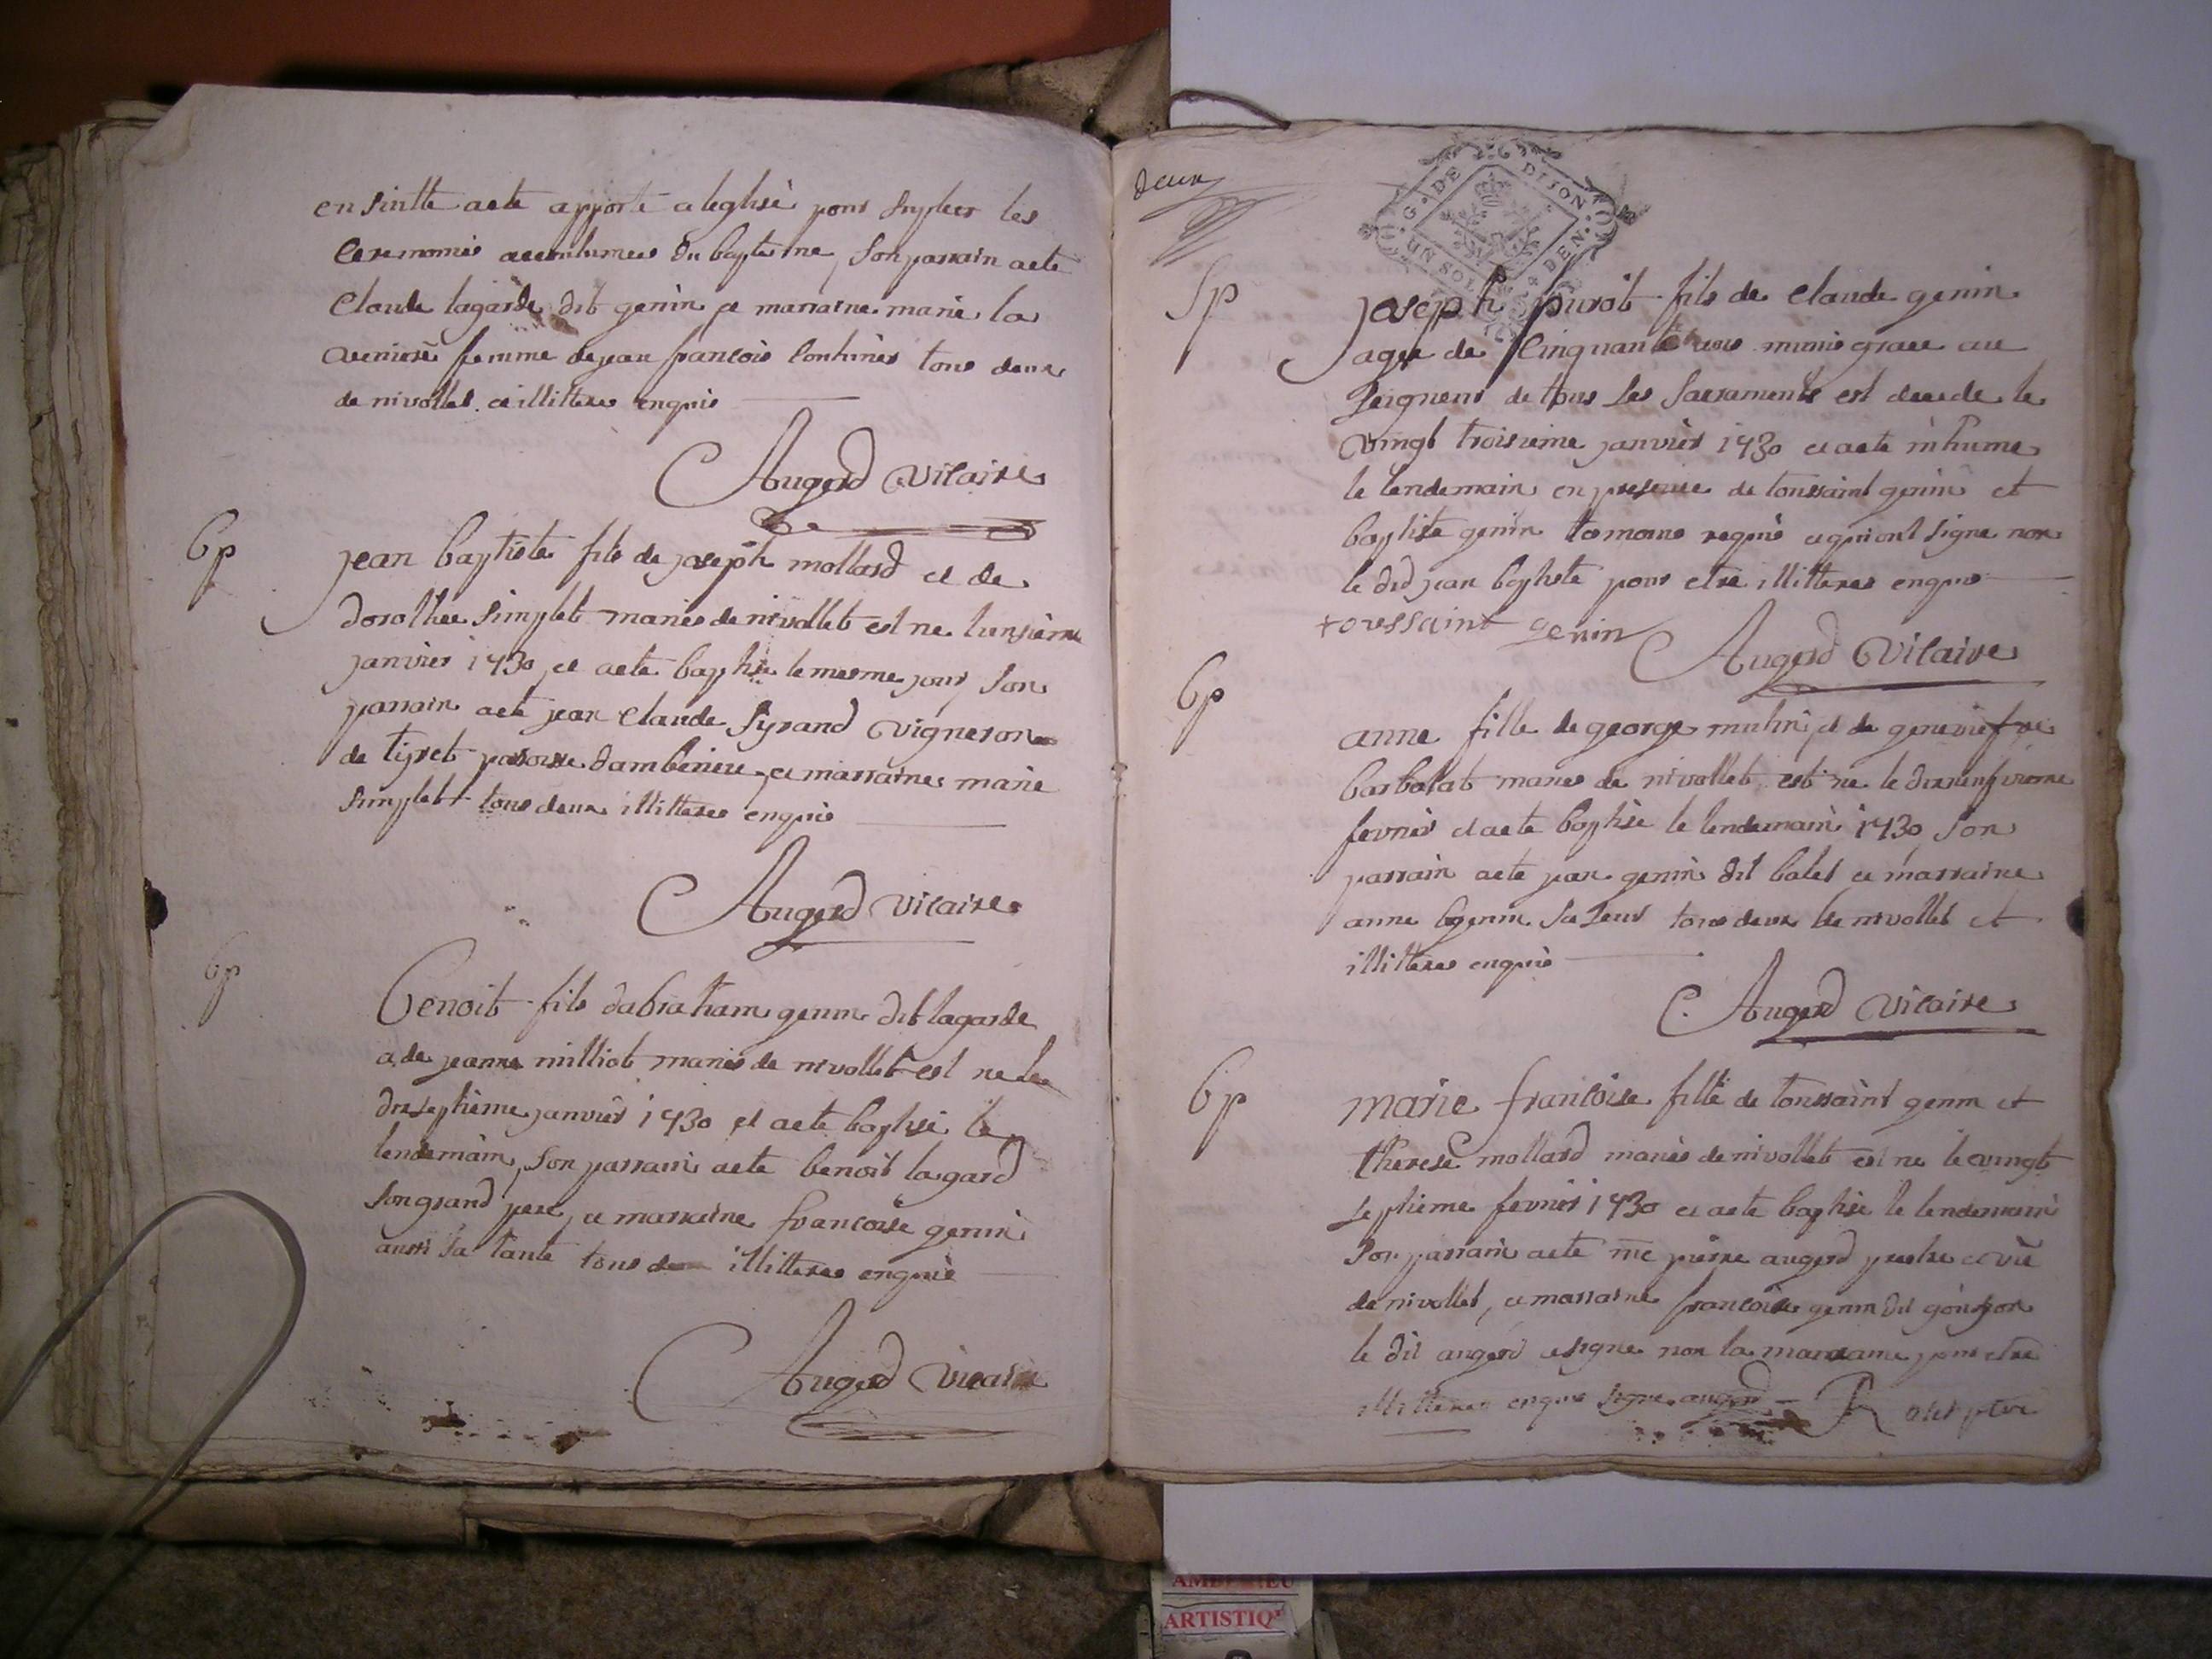 ensuitte aeté apporté a leglise pour supleer les
Ceremonies accoutumees du bapteme, son parrain aeté
Claude lagarde dit genin et marraine marie la
femme de jean françois tous deux
de nivollet et illitteres enquis
Augerd vicaire
bp
jean baptiste fils de joseph mollard et de
dorothee simplet mariés de nivollet est né lunzieme
janvier 1730 et aeté baptisé le mesme jour, son
parrain aeté jean Claude syrand vigneron
de tiret paroisse dambérieu, et marraine marie
simplet tous deux illitteres enquis
Augerd vicaire
bp
benoit fils dabraham genin dit lagarde
et de jeanne milliot mariés de nivollet est né le
dixseptième janvier 1730 et aeté baptisé le
lendemain, son parrain aeté benoit lagard
son grand pere, et marraine françoise genin
aussi sa tante tous deux illitteres enquis
Augerd vicaire
deux
G. DE DIJON
UN SOL 4 DEN.
Sp
joseph purot fils de Claude genin
agé de Cinquante ans munis grace au
seigneur de tous les sacraments est decede le
vingt troisieme janvier 1730 et aeté inhumé
le lendemain en presence de toussaint genin et
baptiste genin temoins requis et qui ont signé non
le dit jean baptiste pour etre illitteres enquis
toussaint genin Augerd vicaire
bp
anne fille de george mutin et de geneviefve
barbolat mariés de nivollet est né le dixneufvieme
fevrier et aeté baptisé le lendemain 1730 son
parrain aeté jean genin dit balet et marraine
anne genin sa seur tous deux de nivollet et
illitteres enquis
Augerd vicaire
bp
marie françoise fille de toussaint genin et
therese mollard mariés de nivollet est né le vingt
septieme fevrier 1730 et aeté baptisé le lendemain
son parrain aeté mre pierre augerd prestre et vic
de nivollet, et marraine françoise genin dit goujon
le dit augerd a signé non la marraine pour etre
illitteres enquis signé augerd
AMBERIEU
ARTISTIQ